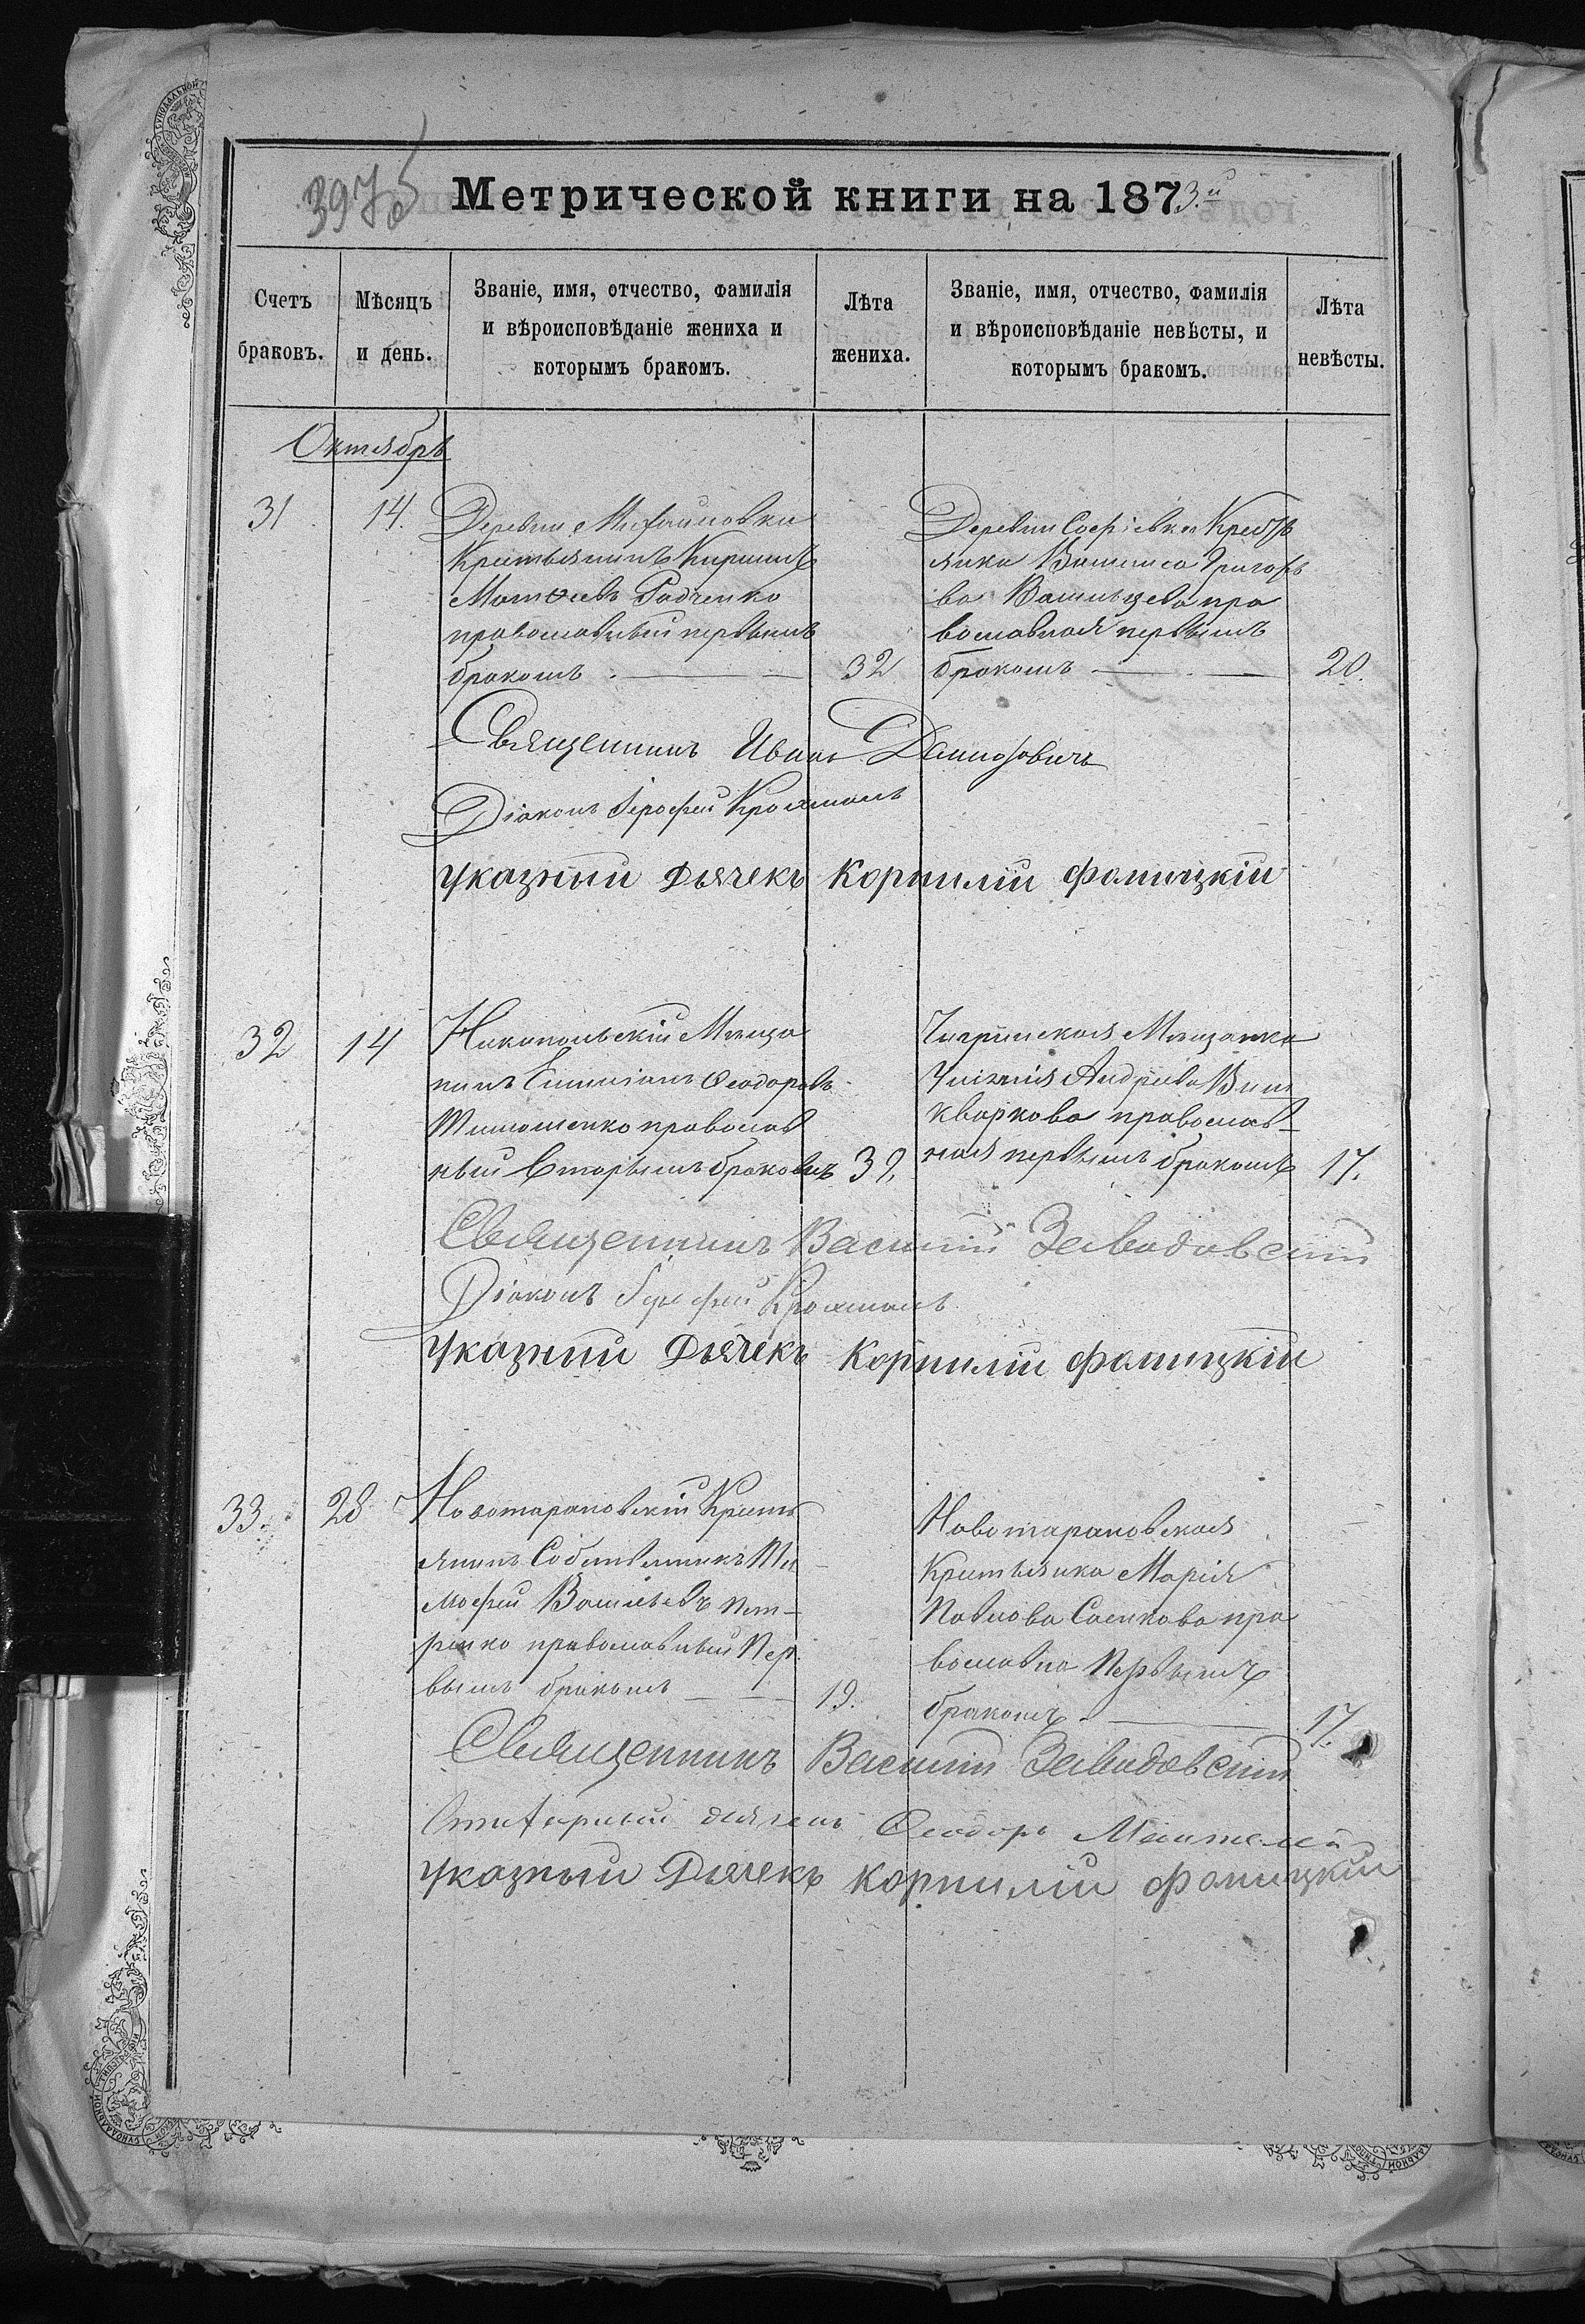 397б
Метрической книги на 1873й
Счетъ браковъ.
Мѣсяцъ и день.
Званіе, имя, отчество, фамилія и вѣроисповѣданіе жениха и которымъ бракомъ.
Лѣта жениха.
Званіе, имя, отчество, фамилія и вѣроисповѣданіе невѣсты, и которымъ бракомъ.
Лѣта невѣсты.
Октябрь
31
14.
Деревни Михайловки
Крестьянинъ Кирилъ
Матѳеевъ Радченко
православный первымъ
бракомъ
32
Деревни Софіевки Кресть
янка Василиса Григорь
ва Васильцева пра
вославная первымъ
бракомъ
20.
Священникъ Иванъ
Діаконъ Іерофей
Указный Дьячекъ Корнилій Фомицкій
32
14
Никопольскій Мѣща
нинъ Ѳеодоровъ
Тимошенко православ
ный вторымъ бракомъ
39.
Чигринская Мѣщанка
Андреева
кваркова православ-
ная первымъ бракомъ
17.
Священникъ Василій Заводовскій
Діаконъ Іерофей
Указный Дьячекъ Корнилій Фомицкій
33.
28
Крестъ
янинъ Собственникъ Ти
мофей Васильевъ Пет-
ренко православный Пер
вымъ бракомъ
19.
Крестьянка Марія
Павлова пра
вославна Первымъ
бракомъ
17.
Священникъ Василій Заводовскій
дьячекъ Ѳеодоръ
Указный Дьячекъ Корнилій Фомицкій